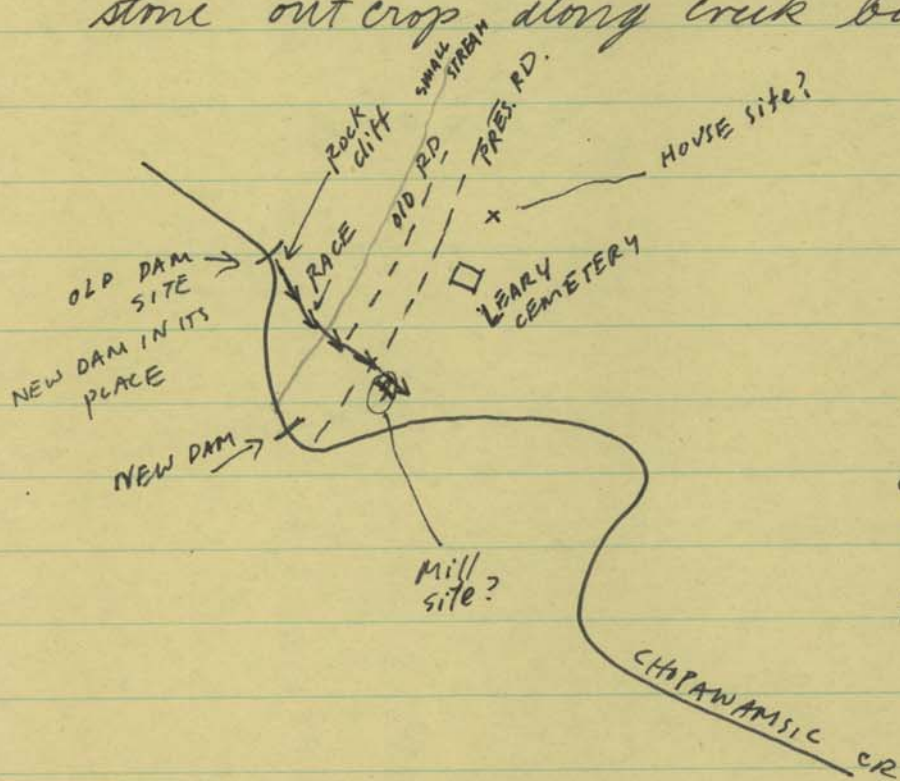 stone outcrop along creek
SMALL
STREAM
PRES. RD.
ROCK
cliff
OLD RD
HOUSE site?
RACE
OLD DAM
SITE
NEW DAM IN ITS
PLACE
LEARY
CEMETERY
NEW DAM
Mill
site?
CHOPAWAMSIC CR